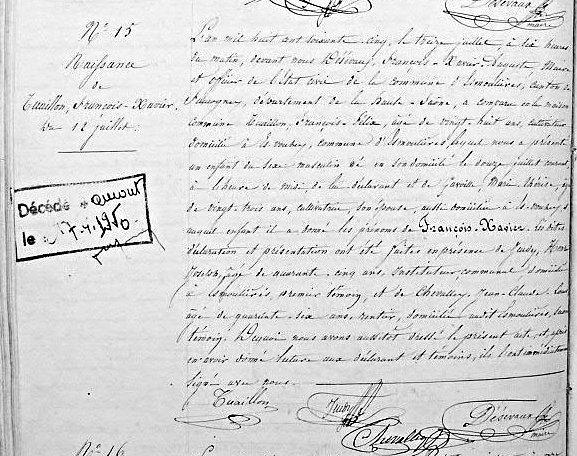 Désevaux
maire
N° 15
Naissance
de
Tuaillon, François-Xavier,
du 12 juillet.
Décédé à
le 7.1.1950
L'an mil huit cent soixante cinq, le treize juillet, à six heures
du matin, devant nous Désevaux, François-Xavier-Auguste Maire
et officier de l'état civil de la commune d'Esmoulières, canton de
Faucogney, département de la Haute-Saône, a comparu en la maison
commune Tuaillon, François-Félix, âgé de vingt-huit ans, cultivateur
domicilié à commune d'Esmoulières, lequel nous a présenté
un enfant du sexe masculin né en son domicile le douze juillet courant
à l'heure de midi de lui déclarant et de Marie Thérèse, âgée
de vingt-trois ans, cultivatrice, son épouse, aussi domiciliée à
auquel enfant il a donné les prénoms de François-Xavier. Les dites
déclaration et présentation ont été faites en présence de Jeudy,
Joseph, âgé de quarante-cinq ans, instituteur communal domicilié
à Esmoulières, premier témoin, et de Chevalley, Jean-Claude
âgé de quarante-six ans, rentier, domicilié audit Esmoulières,
témoin. De quoi nous avons aussitôt dressé le présent acte, et, après
en avoir donné lecture aux déclarant et témoins, ils l'ont immédiatement
signé avec nous.
Tuaillon Jeudy Désevaux
Chevalley maire
N° 16